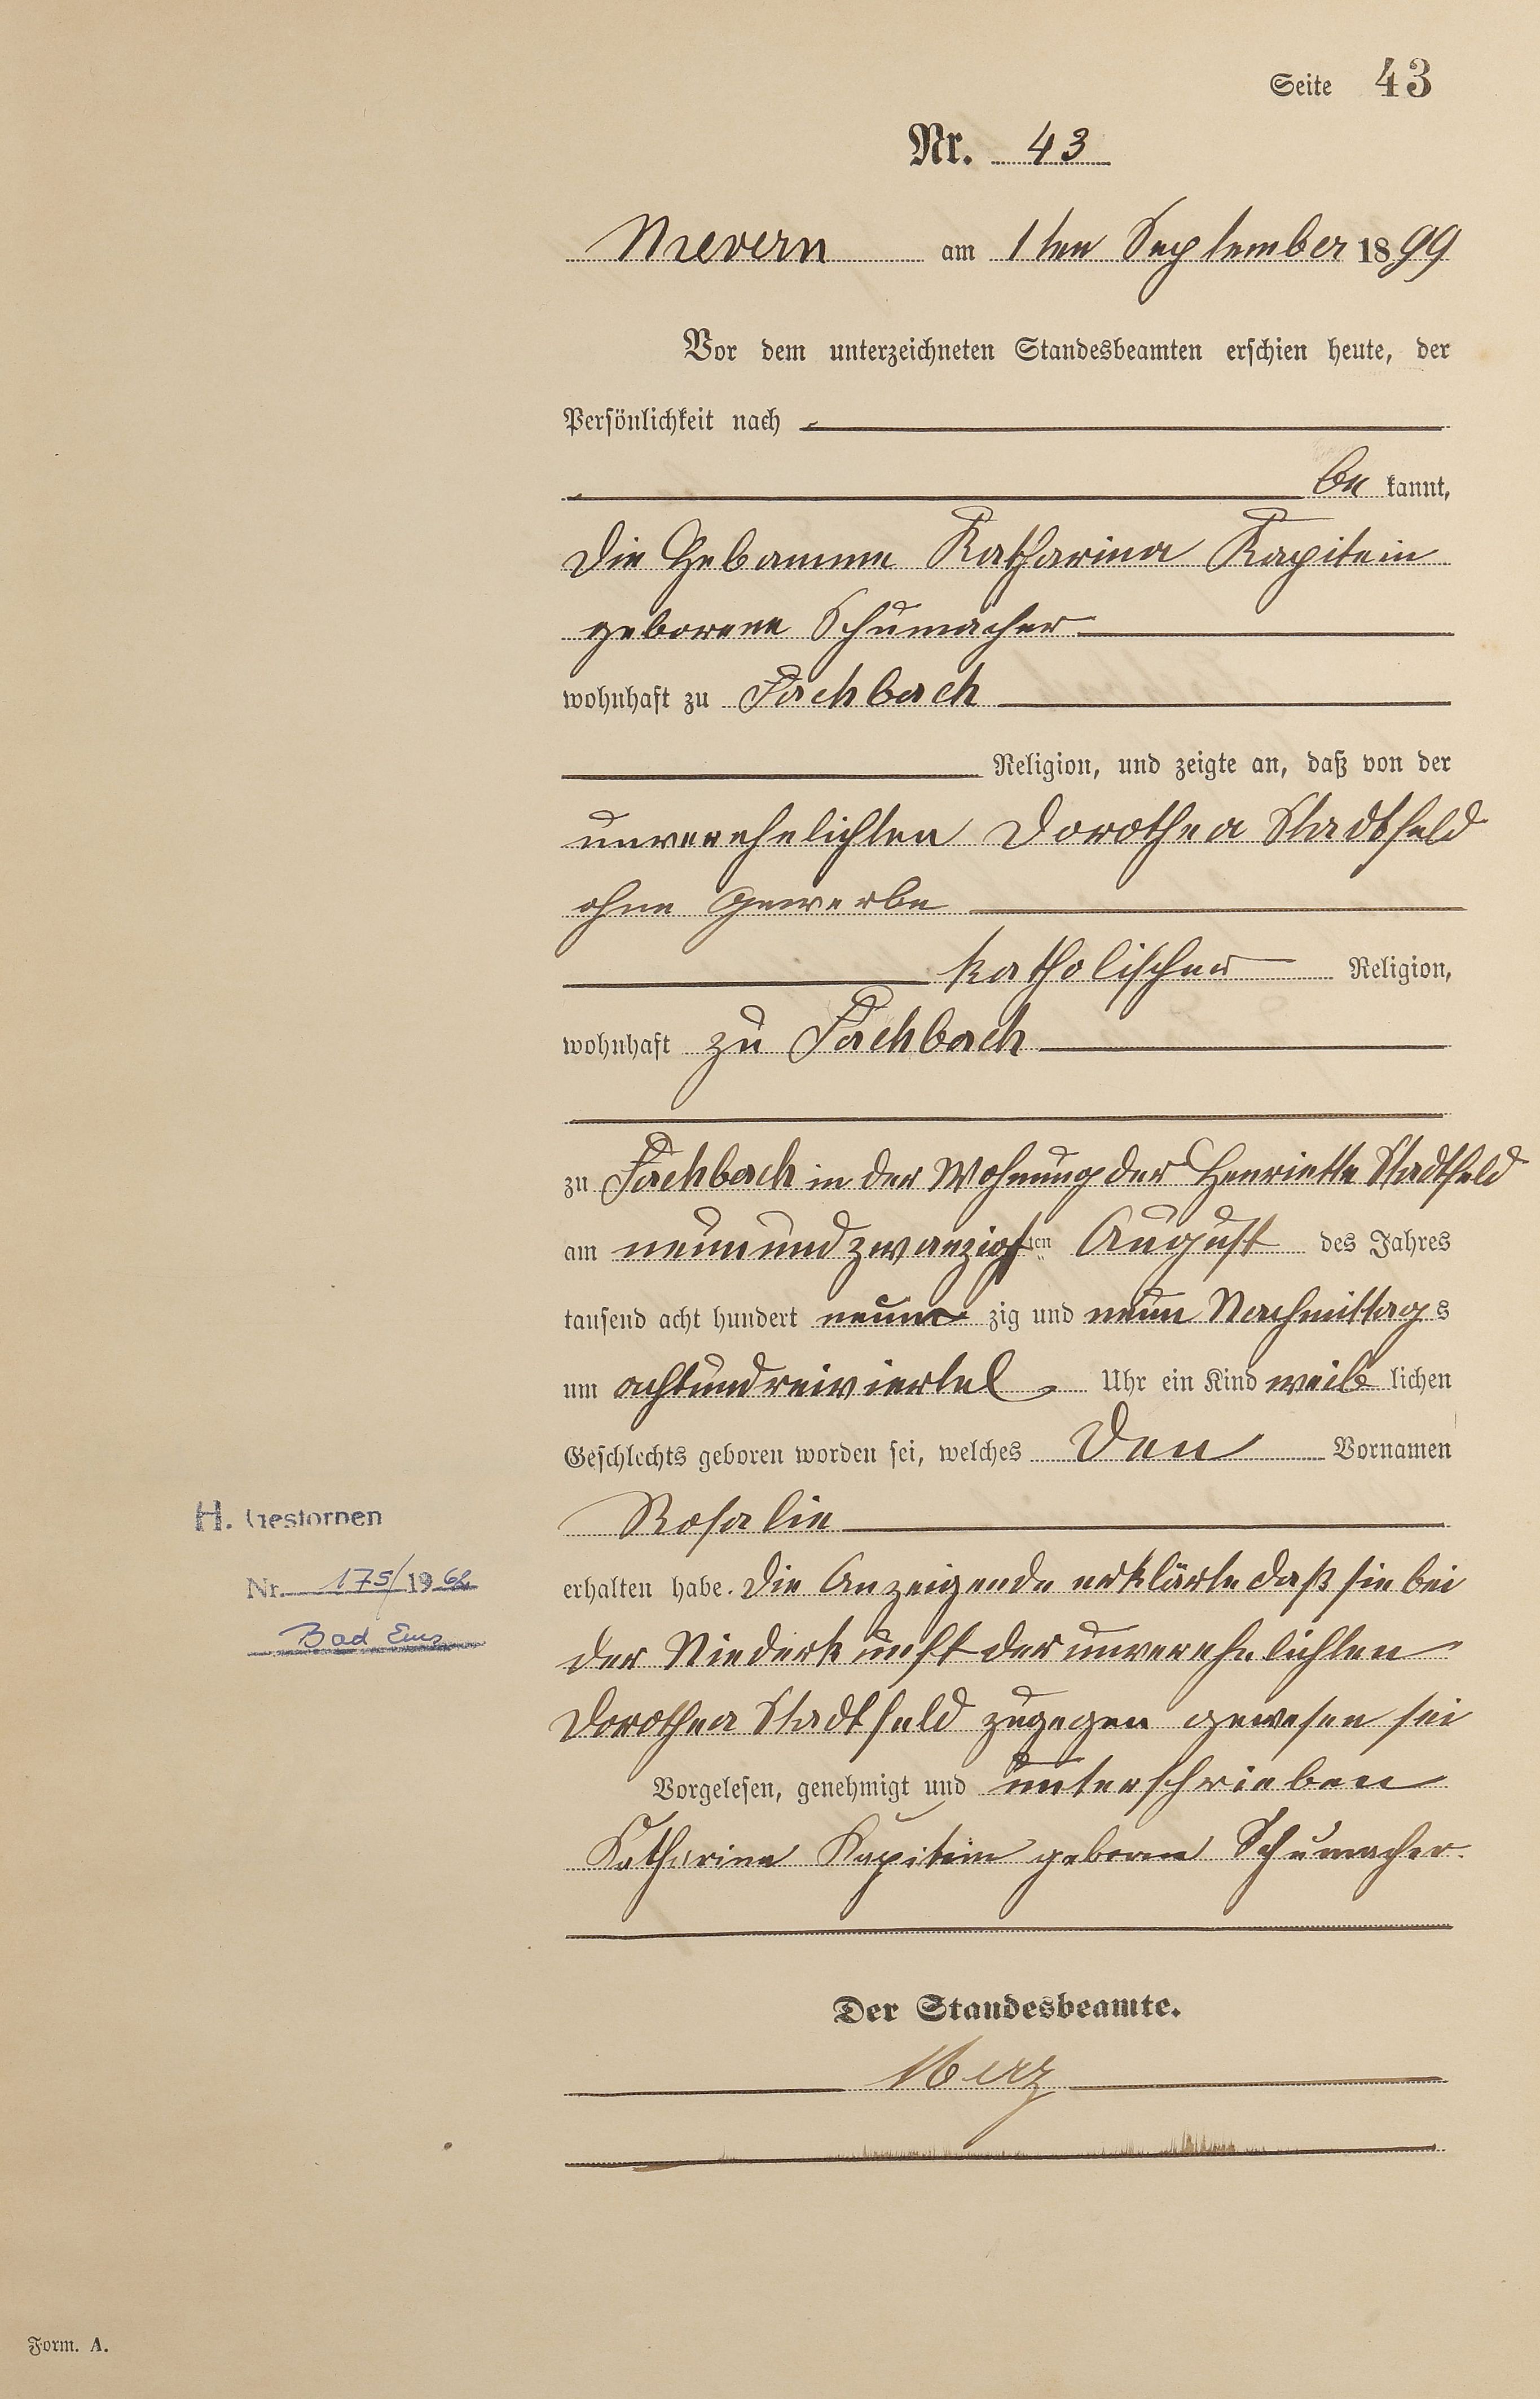 Seite 43
Nr. 43
Nievern am 1ten September 1899
Vor dem unterzeichneten Standesbeamten erschien heute, der
Persönlichkeit nach
be kannt,
die Hebamme Katharina Kapitein
geborene Schumacher
wohnhaft zu Fachbach
Religion, und zeigte an, daß von der
unverehelichten Dorothea Stadtfeld
ohne Gewerbe
katholischer Religion,
wohnhaft zu Fachbach
zu Fachbach in der Wohnung der Henriette Stadtfeld
am neunundzwanzigsten August des Jahres
tausend acht hundert neun zig und neun Nachmittags
um achtundreiviertel Uhr ein Kind weib lichen
Geschlechts geboren worden sei, welches den Vornamen
Rosalie
H. Gestorben
Nr. 175/1962
Bad Ems
erhalten habe. Die Anzeigende erklärte daß sie bei
der Niederkunft der unverehelichten
Dorothea Stadtfeld zugegen gewesen sei
Vorgelesen, genehmigt und unterschrieben
Katharina Kapitein geborne Schumacher.
Der Standesbeamte.
Merz
Form. A.